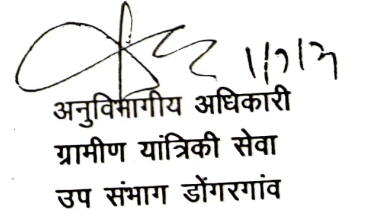 अनुविभागीय अधिकारी
ग्रामीण यांत्रिकी सेवा
उप संभाग डोंगरगांव